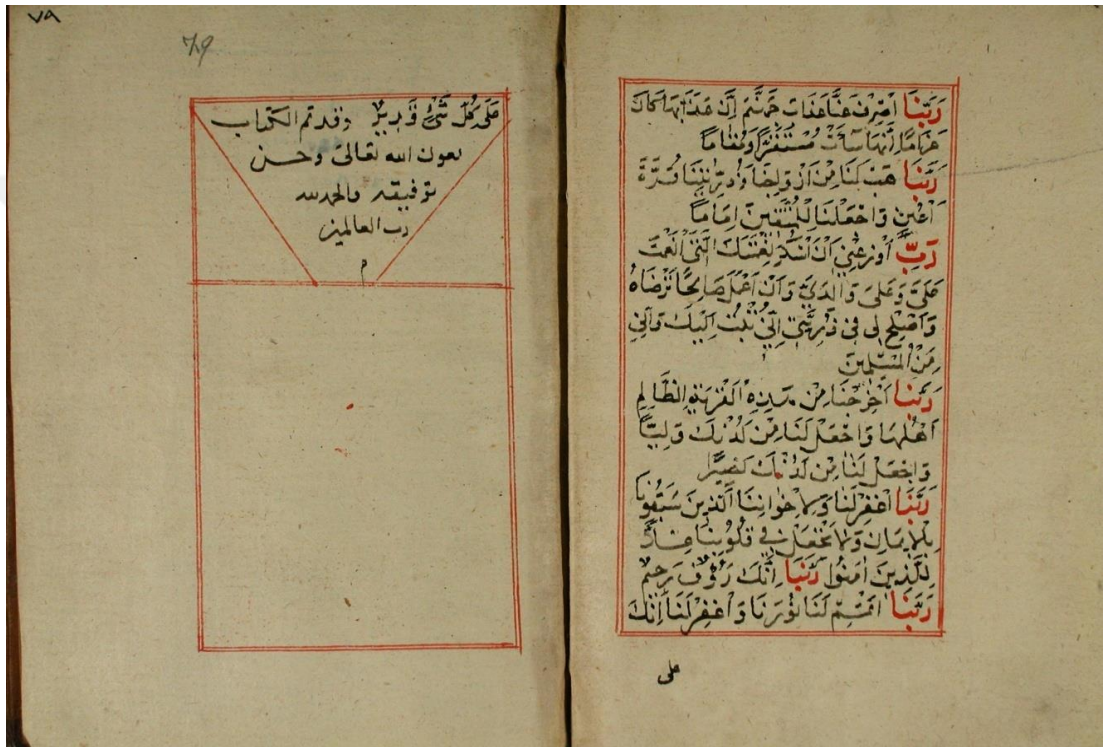 رَبَّنَا اصْرِفْ عَنَّا عَذَابَ جَهَنَّمَ اِنَّ عَذَابَهَا كَانَ
غَرَامًا اِنَّهَا سَآءَتْ مُسْتَقَرًّا وَمُقَامًا
رَبَّنَا هَبْ لَنَا مِنْ اَزْوَاجِنَا وَذُرِّيَّتِنَا قُرَّةَ
اَعْيُنٍ وَاجْعَلْنَا لِلْمُتَّقِينَ اِمَامًا
رَبِّ اَوْزِعْنِي اَنْ اَشْكُرَ نِعْمَتَكَ الَّتِي اَنْعَمْتَ
عَلَيَّ وَعَلَى وَالِدَيَّ وَاَنْ اَعْمَلَ صَالِحًا تَرْضَاهُ
وَاَصْلِحْ لِي فِي ذُرِّيَّتِي اِنِّي تُبْتُ اِلَيْكَ وَاِنِّي
مِنَ الْمُسْلِمِينَ
رَبَّنَا اَخْرِجْنَا مِنْ هَذِهِ الْقَرْيَةِ الظَّالِمِ
اَهْلُهَا وَاجْعَلْ لَنَا مِنْ لَدُنْكَ وَلِيًّا
وَاجْعَلْ لَنَا مِنْ لَدُنْكَ نَصِيرًا
رَبَّنَا اغْفِرْ لَنَا وَلِاِخْوَانِنَا الَّذِينَ سَبَقُونَا
بِالْاِيمَانِ وَلَا تَجْعَلْ فِي قُلُوبِنَا غِلًّا
لِلَّذِينَ اٰمَنُوا رَبَّنَا اِنَّكَ رَؤُفٌ رَحِيمٌ
رَبَّنَا اَتْمِمْ لَنَا نُورَنَا وَاغْفِرْ لَنَا اِنَّكَ
على
٧٩
79
عَلَى كُلِّ شَيْءٍ قَدِيرٌ وقد تم الكتاب
بعون الله تعالى وحسن
توفيقه والحمد لله
رب العالمين
م